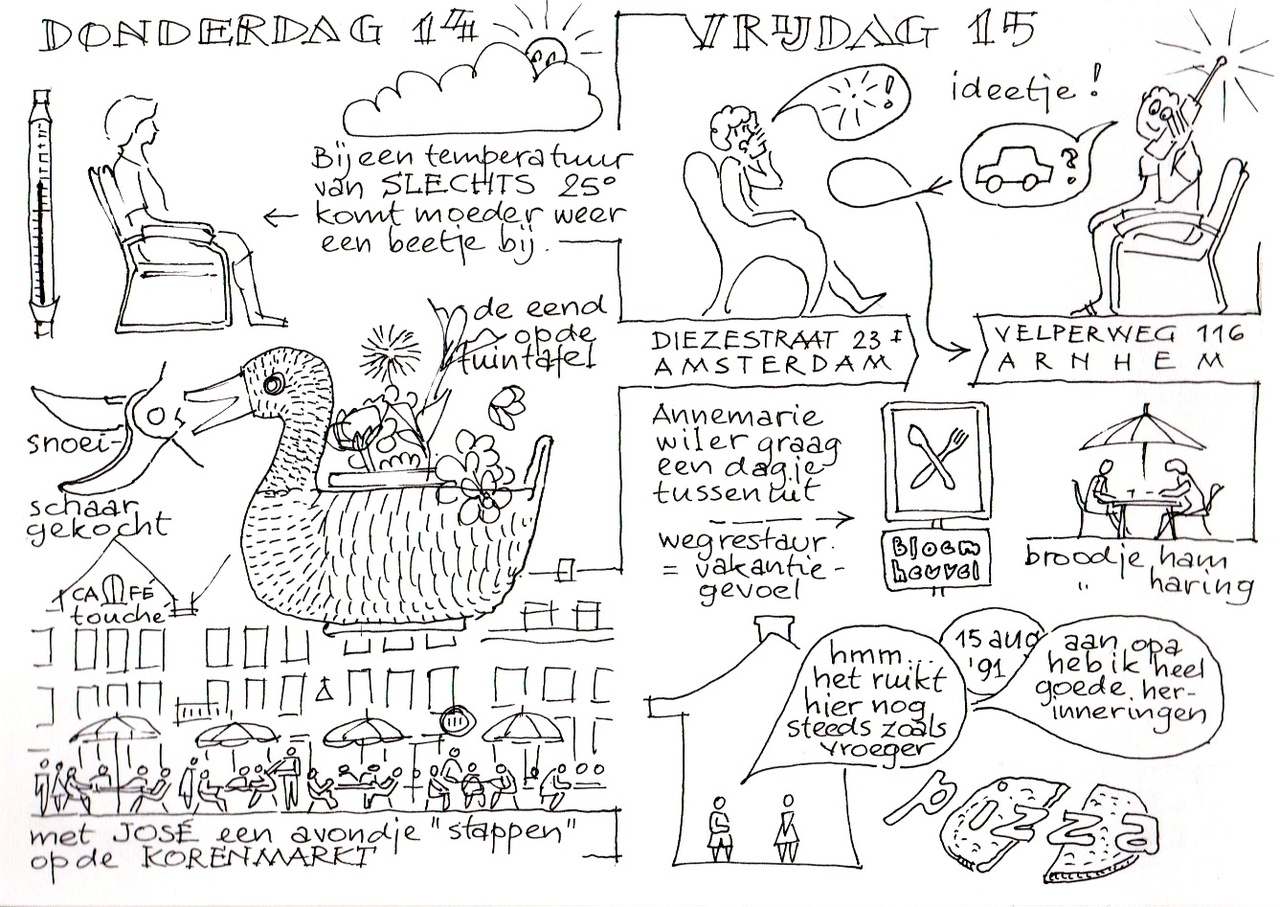 DONDERDAG 14
Bij een temperatuur
van SLECHTS 25°
komt moeder weer
een beetje bij.
de eend
op de
tuintafel
snoei-
schaar
gekocht
CAFÉ
touché
met JOSÉ een avondje "stappen"
op de KORENMARKT
VRIJDAG 15
!
ideetje!
?
DIEZESTRAAT 23 I
AMSTERDAM
VELPERWEG 116
ARNHEM
Annemarie
wil er graag
een dagje
tussenuit
wegrestaur.
= vakantie-
gevoel
Bloem
heuvel
broodje ham
" haring
hmm...
het ruikt
hier nog
steeds zoals
vroeger
15 aug
'91
aan opa
heb ik heel
goede her-
inneringen
pizza